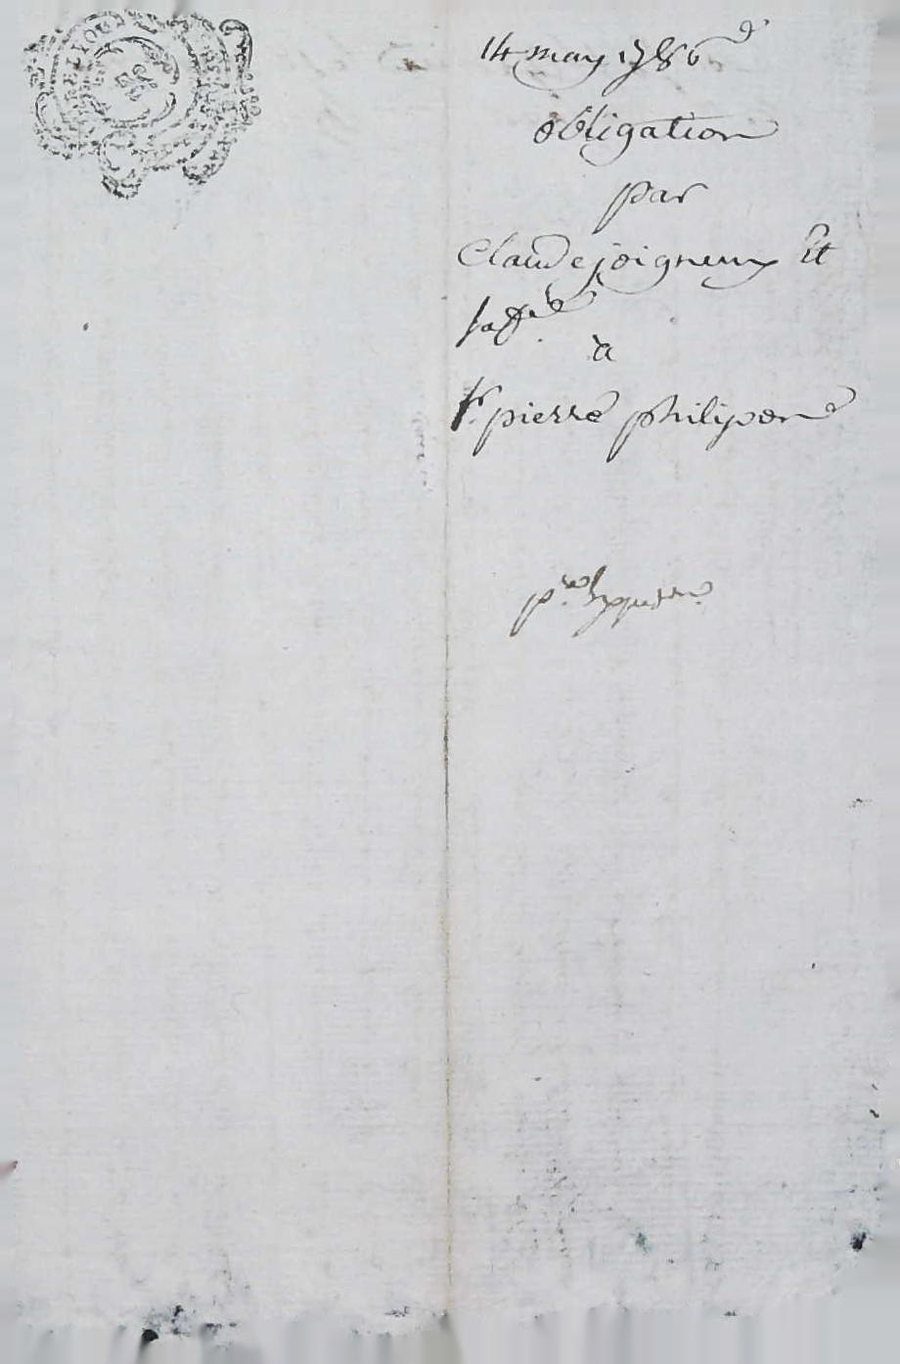 14 may 1786
obligation
par
Claude joigneux Et
sa fe
a
Sr pierre philipon
pre Expedition